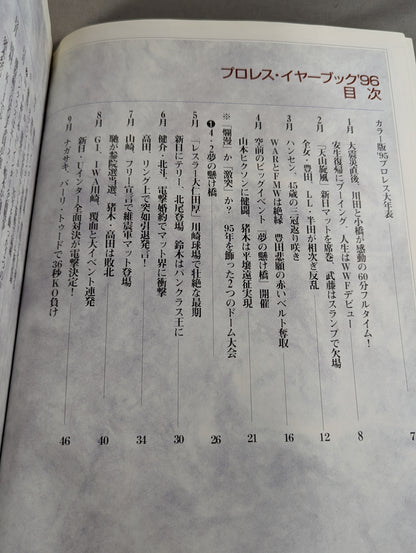 プロレス・イヤーブック'96
目 次
カラー版'95プロレス大年表
1月 大震災直後、川田と小橋が感動の60分フルタイム!
安生復帰にブーイング、人生はWWFデビュー
8
2月 「天山旋風」新日マットを席巻、武藤はスランプで欠場
全女・豊田、LL・半田が相次ぎ反乱
12
3月 ハンセン、45歳の三冠返り咲き
WARとFMWは絶縁 豊田悲願の赤いベルト奪取
16
4月 空前のビッグイベント「夢の懸け橋」開催
山本ヒクソンに健闘 猪木は平壌遠征実現
21
※「爛漫」か「激突」か? 95年を飾った2つのドーム大会
❶4・2夢の懸け橋
26
5月 「レスラー大仁田厚」川崎球場で壮絶な最期
新日にテリー、北尾登場 鈴木はパンクラス王に
30
6月 健介・北斗、電撃婚約でマット界に衝撃
高田、リング上で突如引退発言!
34
7月 山崎、フリー宣言で維震軍マット登場
馳が参院選当選、猪木・高田は敗北
8月 G1、IWA川崎、覆面と大イベント連発
新日・Uインター全面対決が電撃決定!
40
9月 ナガサキ、バーリ・トゥードで36秒KO負け
46